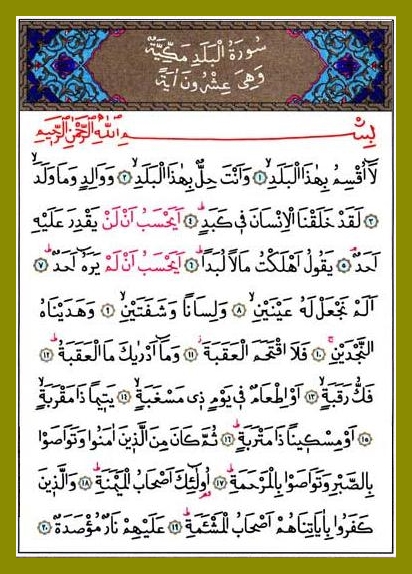 سُورَةُ الْبَلَدِ مَكِّيَّةٌ
وَهِيَ عِشْرُونَ اٰيَةً
بِسْمِ اللّٰهِ الرَّحْمٰنِ الرَّحِيمِ
لَٓا اُقْسِمُ بِهٰذَا الْبَلَدِۙ ﴿١﴾ وَاَنْتَ حِلٌّ بِهٰذَا الْبَلَدِۙ ﴿٢﴾ وَوَالِدٍ وَمَا وَلَدَۙ
﴿٣﴾ لَقَدْ خَلَقْنَا الْاِنْسَانَ ف۪ي كَبَدٍۜ ﴿٤﴾ اَيَحْسَبُ اَنْ لَنْ يَقْدِرَ عَلَيْهِ
اَحَدٌۢ ﴿٥﴾ يَقُولُ اَهْلَكْتُ مَالًا لُبَدًاۜ ﴿٦﴾ اَيَحْسَبُ اَنْ لَمْ يَرَهُٓ اَحَدٌۜ ﴿٧﴾
اَلَمْ نَجْعَلْ لَهُ عَيْنَيْنِۙ ﴿٨﴾ وَلِسَانًا وَشَفَتَيْنِۙ ﴿٩﴾ وَهَدَيْنَاهُ
النَّجْدَيْنِۚ ﴿١٠﴾ فَلَا اقْتَحَمَ الْعَقَبَةَۘ ﴿١١﴾ وَمَٓا اَدْرٰيكَ مَا الْعَقَبَةُۜ ﴿١٢﴾
فَكُّ رَقَبَةٍۙ ﴿١٣﴾ اَوْ اِطْعَامٌ ف۪ي يَوْمٍ ذ۪ي مَسْغَبَةٍۙ ﴿١٤﴾ يَت۪يمًا ذَا مَقْرَبَةٍۙ
﴿١٥﴾ اَوْ مِسْك۪ينًا ذَا مَتْرَبَةٍۜ ﴿١٦﴾ ثُمَّ كَانَ مِنَ الَّذ۪ينَ اٰمَنُوا وَتَوَاصَوْا
بِالصَّبْرِ وَتَوَاصَوْا بِالْمَرْحَمَةِۜ ﴿١٧﴾ اُو۬لٰٓئِكَ اَصْحَابُ الْمَيْمَنَةِۜ ﴿١٨﴾ وَالَّذ۪ينَ
كَفَرُوا بِاٰيَاتِنَا هُمْ اَصْحَابُ الْمَشْـَٔمَةِۜ ﴿١٩﴾ عَلَيْهِمْ نَارٌ مُؤْصَدَةٌ ﴿٢٠﴾